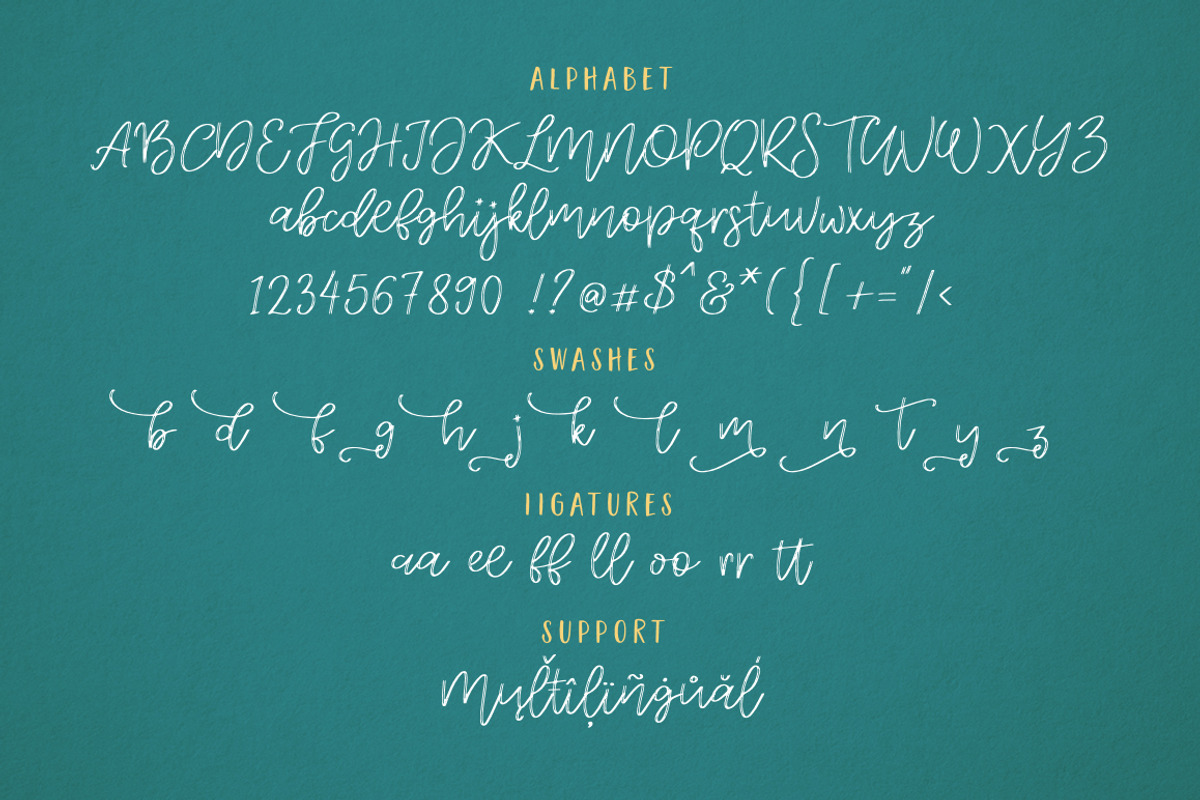 ALPHABET
ABCDEFGHIJKLMNOPQRSTUVWXYZ
abcdefghijklmnopqrstuvwxyz
1234567890 !?@#$^&*({[+="/<
SWASHES
b d f g h j k l m n t y z
IIGATURES
aa ee ff ll oo rr tt
SUPPORT
Mųľŧîļïñġůăĺ